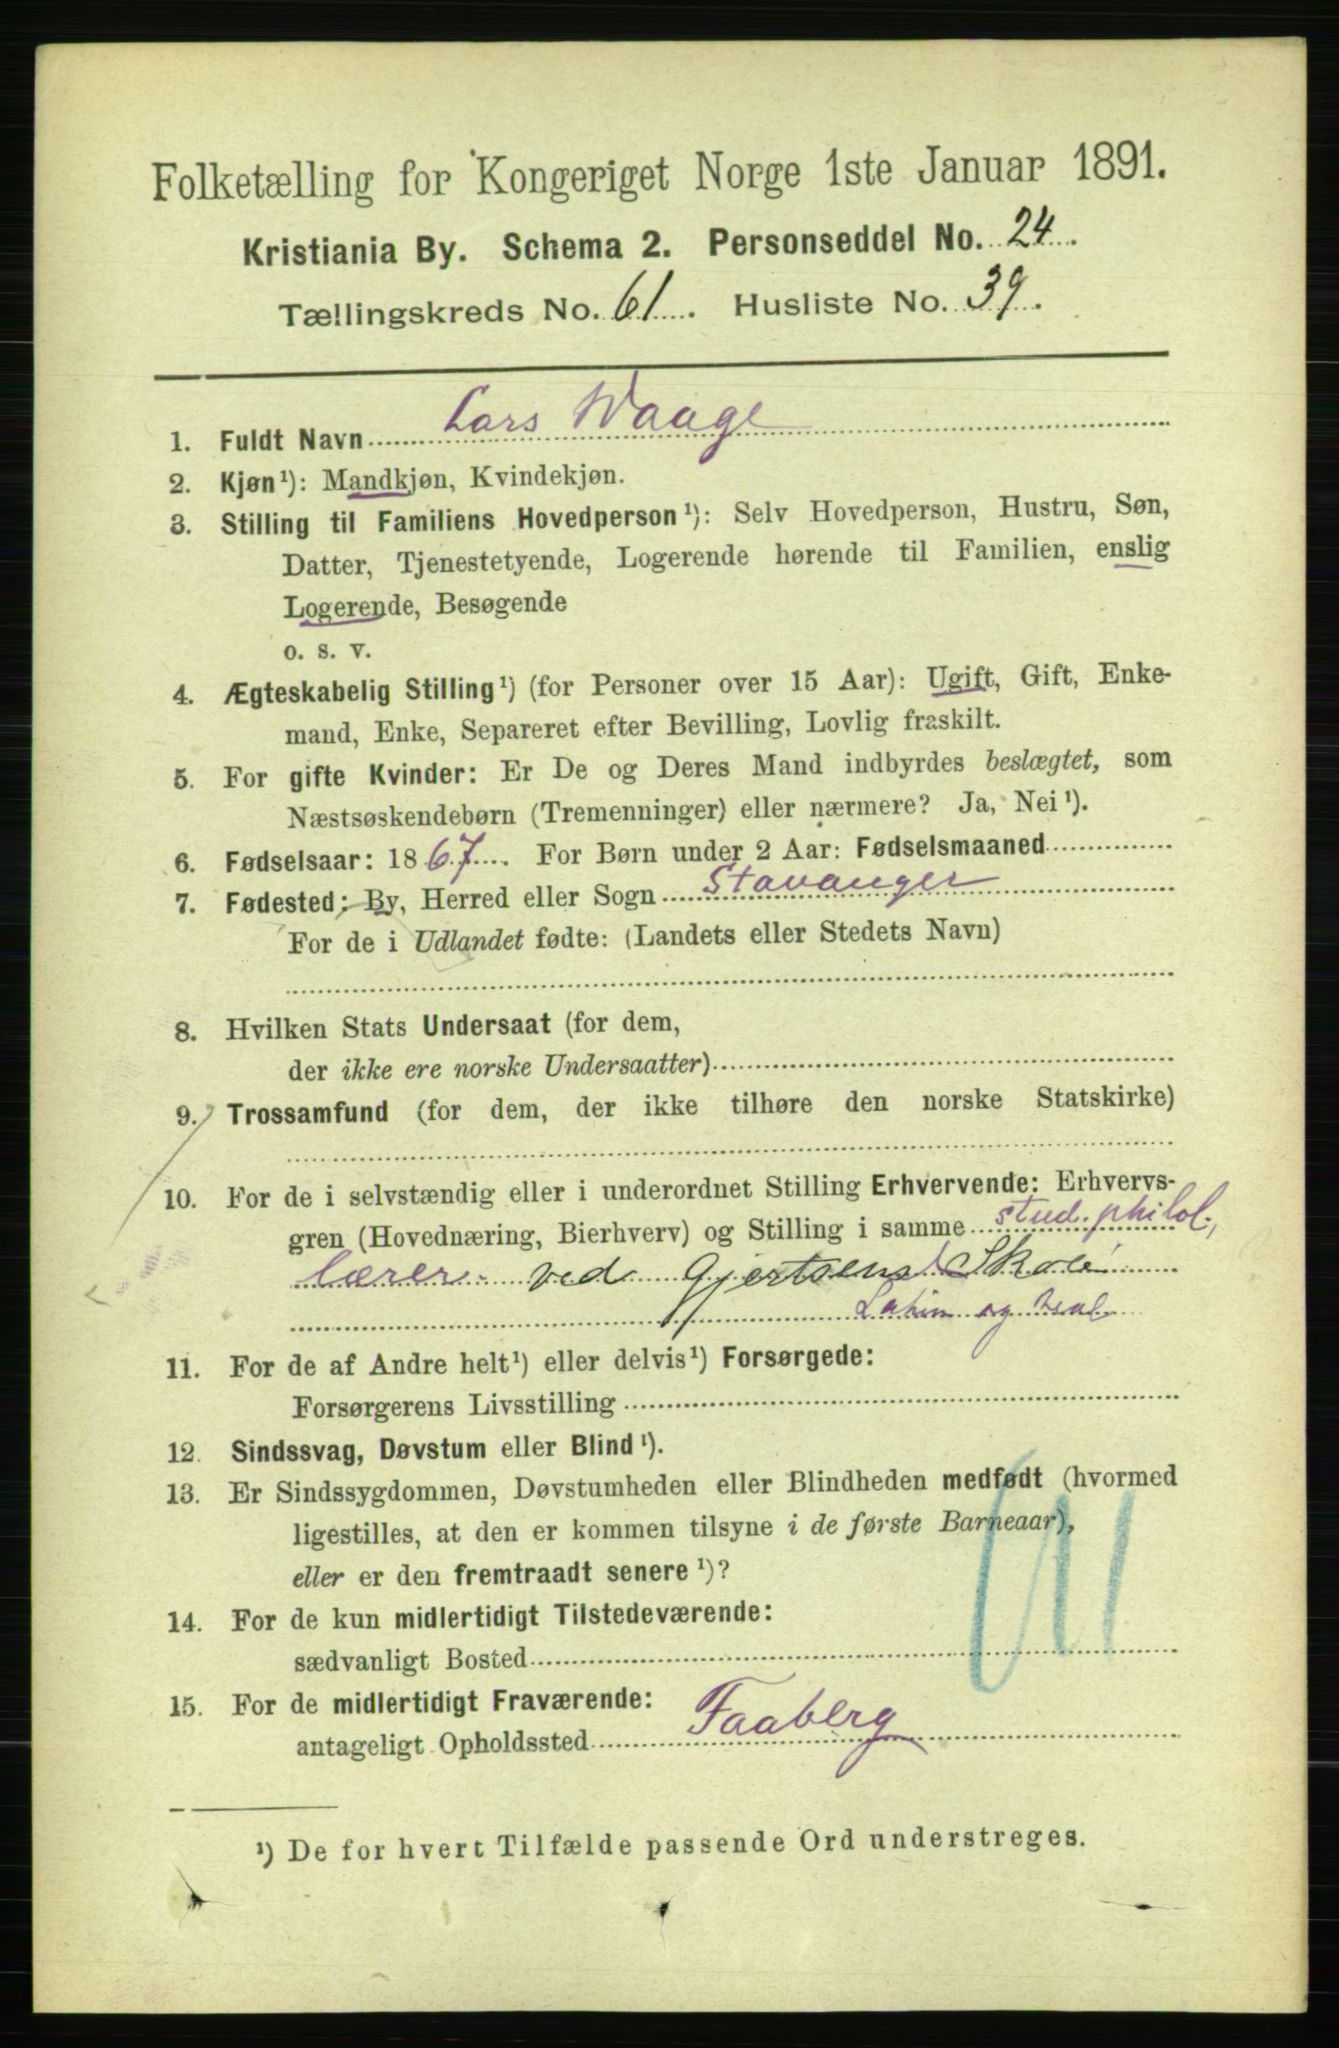 Folketælling for Kongeriget Norge 1ste Januar 1891.
Kristiania By. Schema 2. Personseddel No. 24.
Tællingskreds No. 61. Husliste No. 39.
1. Fuldt Navn Lars Waage
2. Kjøn¹): Mandkjøn, Kvindekjøn.
3. Stilling til Familiens Hovedperson¹): Selv Hovedperson, Hustru, Søn,
Datter, Tjenestetyende, Logerende hørende til Familien, enslig
Logerende, Besøgende
o. s. v.
4. Ægteskabelig Stilling¹) (for Personer over 15 Aar): Ugift, Gift, Enke-
mand, Enke, Separeret efter Bevilling, Lovlig fraskilt.
5. For gifte Kvinder: Er De og Deres Mand indbyrdes beslægtet, som
Næstsøskendebørn (Tremenninger) eller nærmere? Ja, Nei¹).
6. Fødselsaar: 1867. For Børn under 2 Aar: Fødselsmaaned
7. Fødested: By, Herred eller Sogn Stavanger
For de i Udlandet fødte: (Landets eller Stedets Navn)
8. Hvilken Stats Undersaat (for dem,
der ikke ere norske Undersaatter)
9. Trossamfund (for dem, der ikke tilhøre den norske Statskirke)
10. For de i selvstændig eller i underordnet Stilling Erhvervende: Erhvervs-
gren (Hovednæring, Bierhverv) og Stilling i samme stud. philol.,
lærer. ved Gjertsens Skole
Latin og real
11. For de af Andre helt¹) eller delvis¹) Forsørgede:
Forsørgerens Livsstilling
12. Sindssvag, Døvstum eller Blind¹).
13. Er Sindssygdommen, Døvstumheden eller Blindheden medfødt (hvormed
ligestilles, at den er kommen tilsyne i de første Barneaar),
eller er den fremtraadt senere¹)?
14. For de kun midlertidigt Tilstedeværende:
sædvanligt Bosted
15. For de midlertidigt Fraværende:
antageligt Opholdssted Faaberg
¹) De for hvert Tilfælde passende Ord understreges.